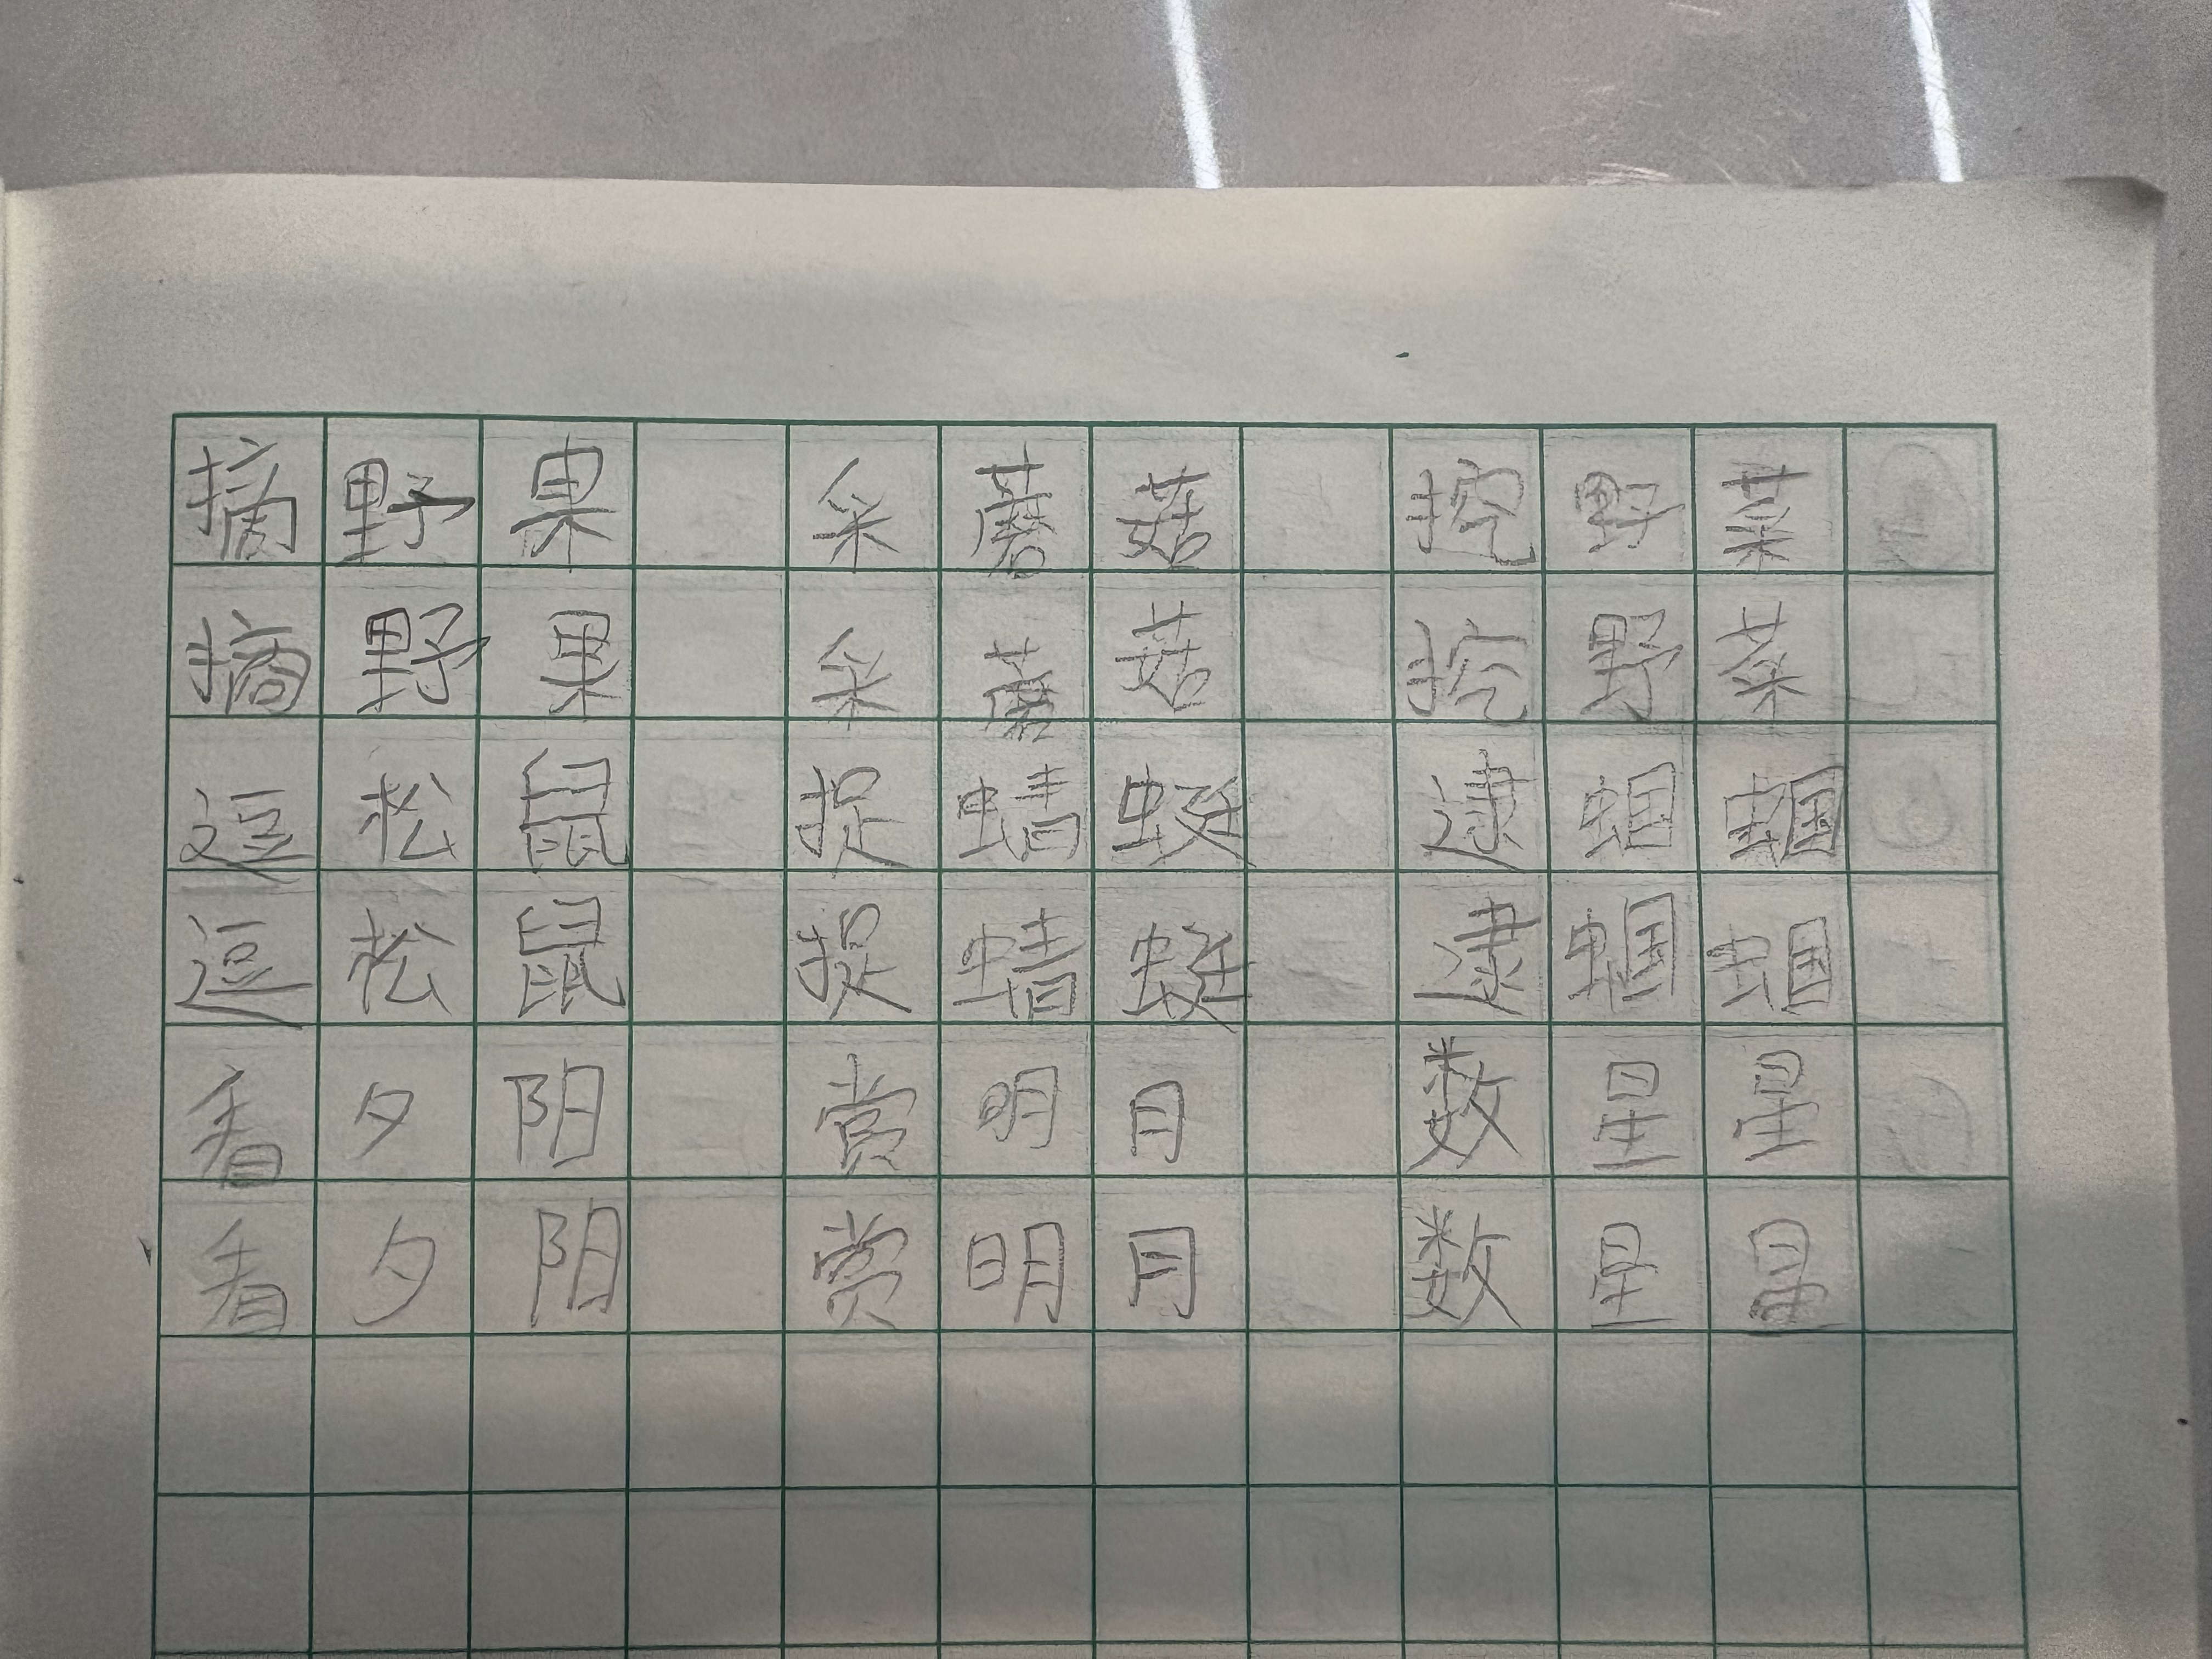 摘野果 采蘑菇 挖野菜
摘野果 采蘑菇 挖野菜
逗松鼠 捉蜻蜓 逮蝈蝈
逗松鼠 捉蜻蜓 逮蝈蝈
看夕阳 赏明月 数星星
看夕阳 赏明月 数星星